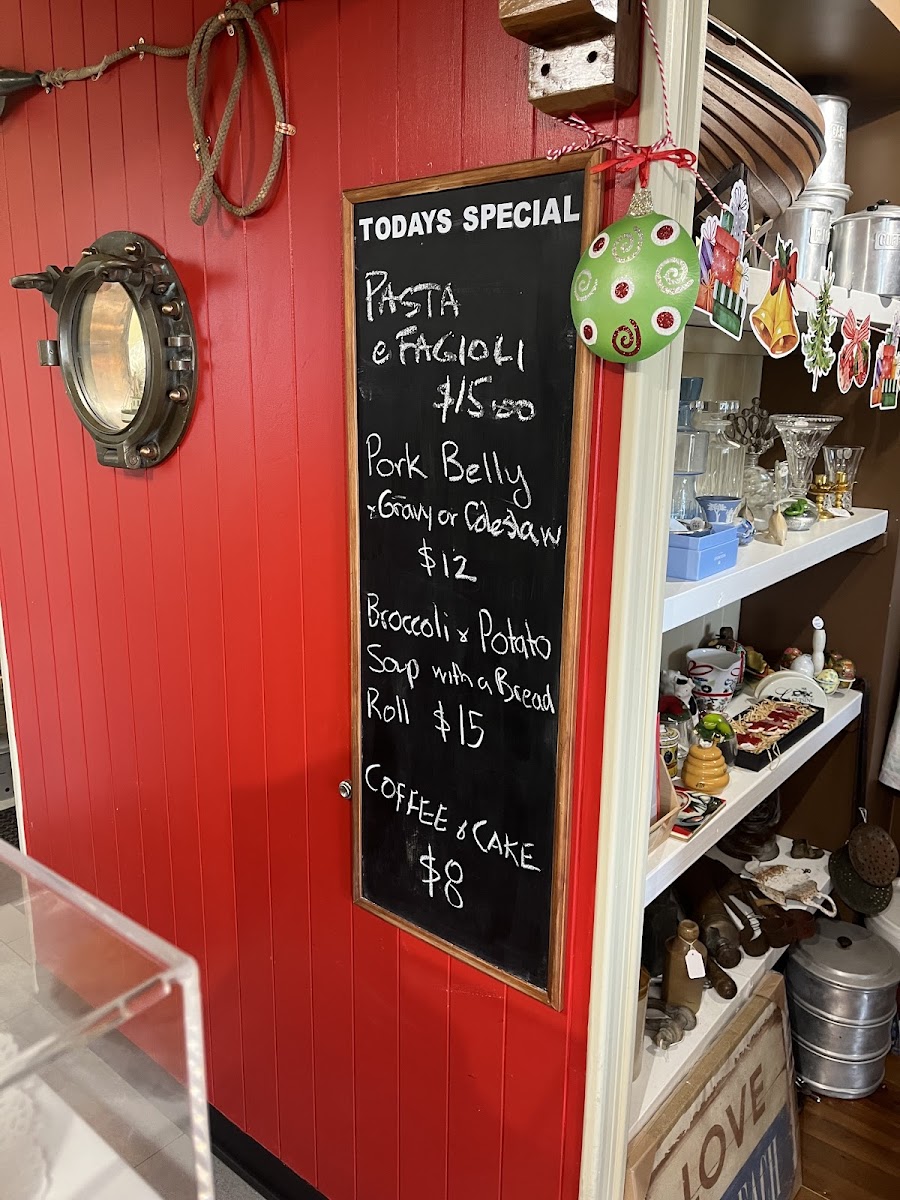 TODAYS SPECIAL
PASTA
e FAGIOLI
$15.00
Pork Belly
& Gravy or Coleslaw
$12
Broccoli & Potato
Soup with a Bread
Roll $15
COFFEE & CAKE
$8
LOVE